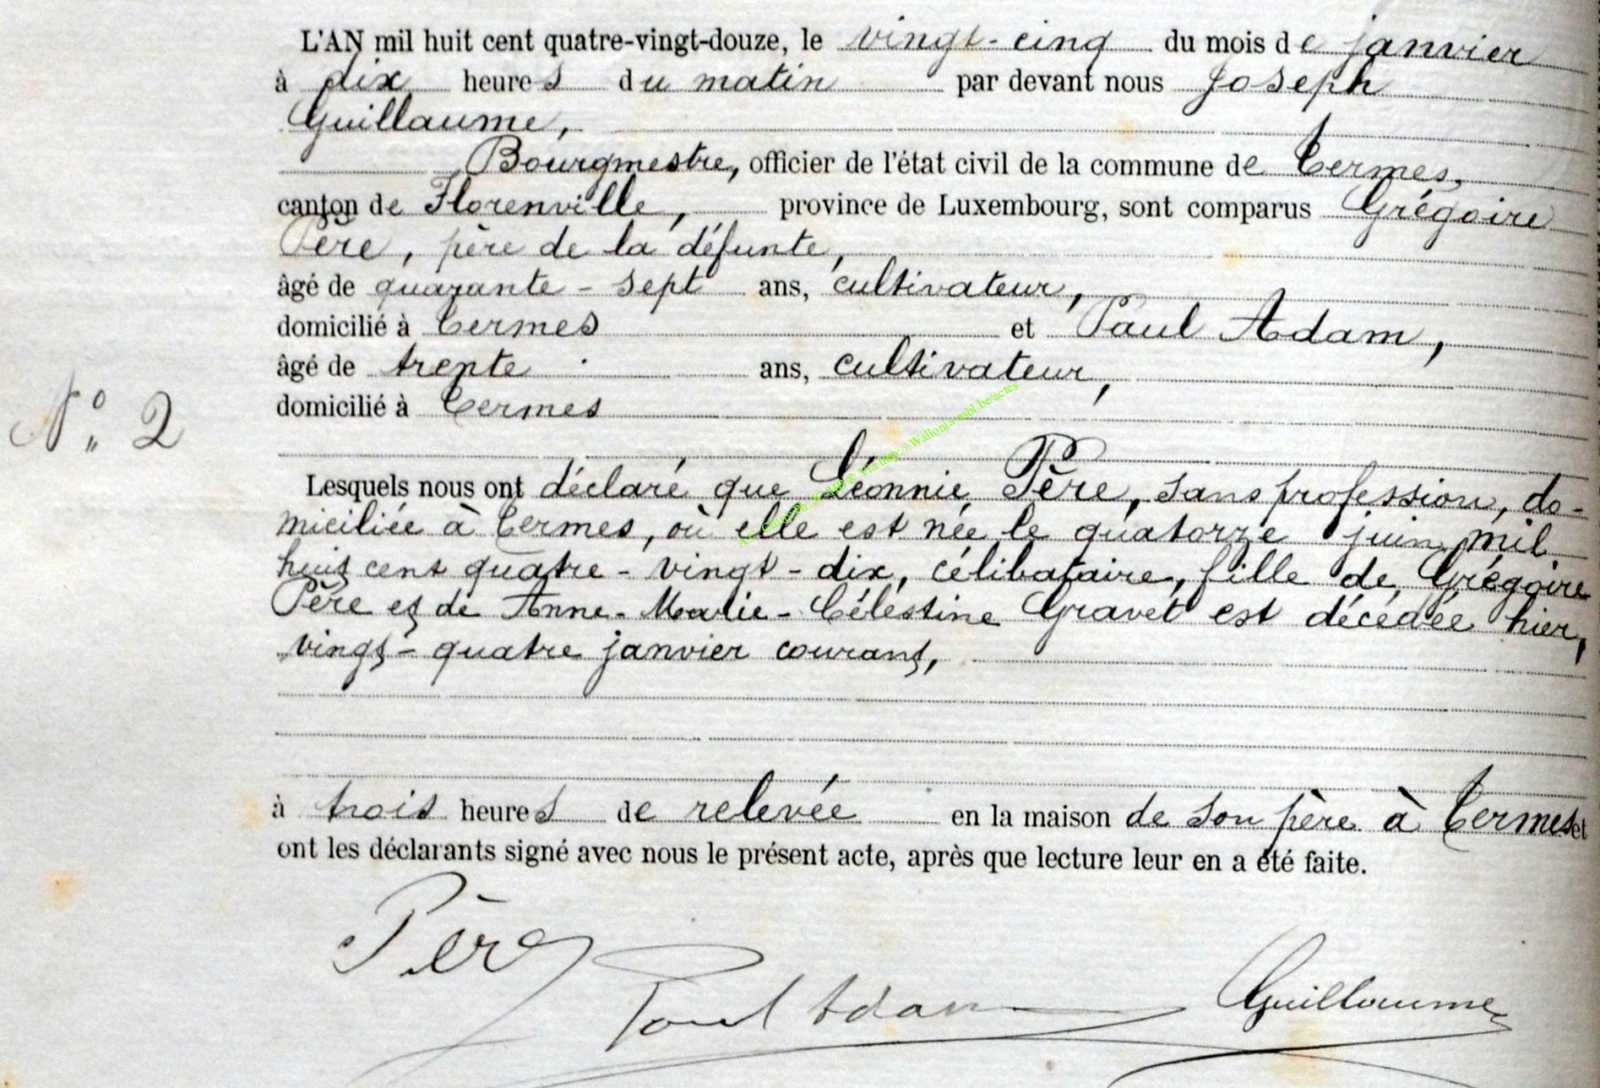 L'AN mil huit cent quatre-vingt-douze, le vingt-cinq du mois de janvier
à dix heures du matin par devant nous Joseph
Guillaume,
Bourgmestre, officier de l'état civil de la commune de Termes,
canton de Florenville, province de Luxembourg, sont comparus Grégoire
Père, père de la défunte,
âgé de quarante-sept ans, cultivateur,
domicilié à Termes et Paul Adam,
âgé de trente ans, cultivateur,
domicilié à Termes
N° 2
Lesquels nous ont déclaré que Léonnie Père, sans profession, do-
miciliée à Termes, où elle est née le quatorze juin mil
huit cent quatre-vingt-dix, célibataire, fille de Grégoire
Père et de Anne-Marie-Célestine Gravet est décédée hier,
vingt-quatre janvier courant,
à trois heures de relevée en la maison de son père à Termes et
ont les déclarants signé avec nous le présent acte, après que lecture leur en a été faite.
Père
Paul Adam
Guillaume